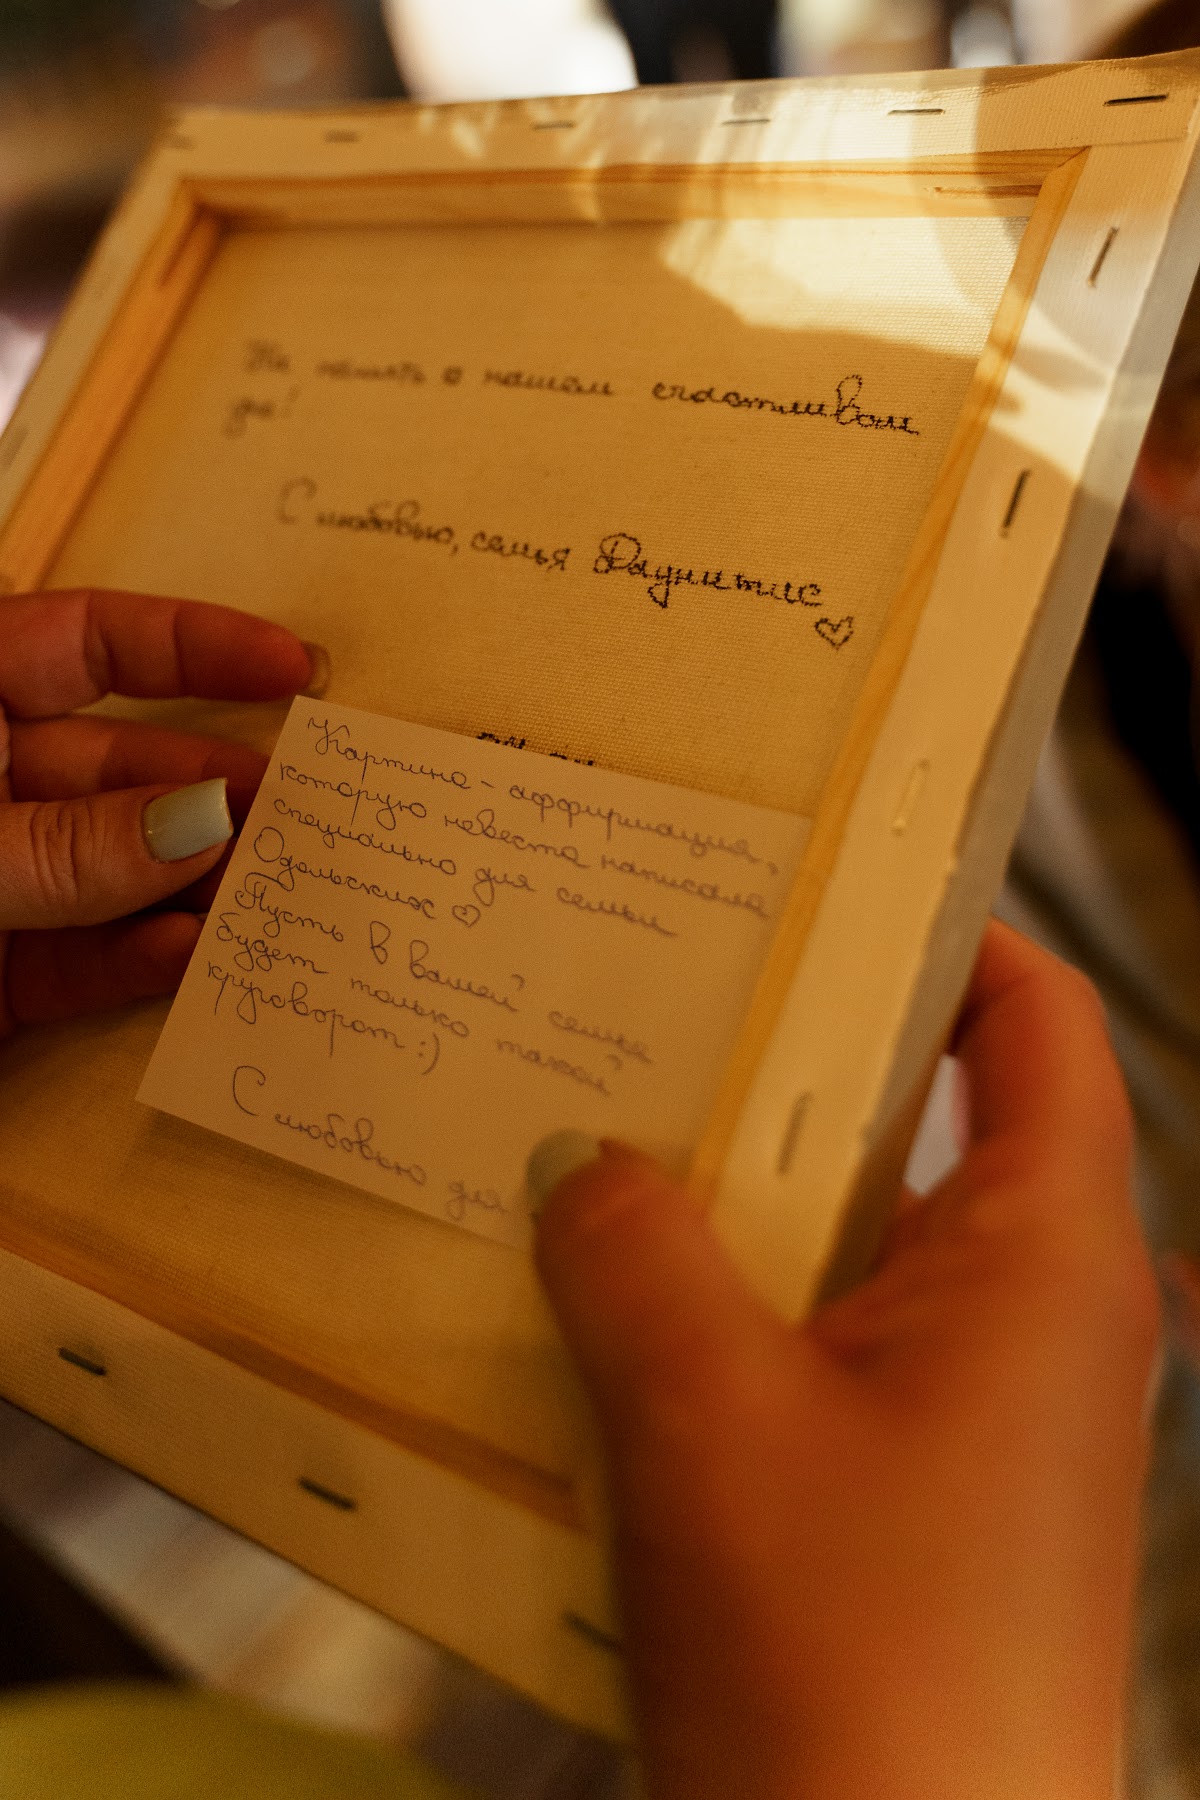 На память о нашем счастливом
да!
С любовью, семья Даунитис
Картина - аффирмация,
которую невеста написала
специально для семьи
Одольских
Пусть в вашей семье
будет только такой
круговорот :)
С любовью для